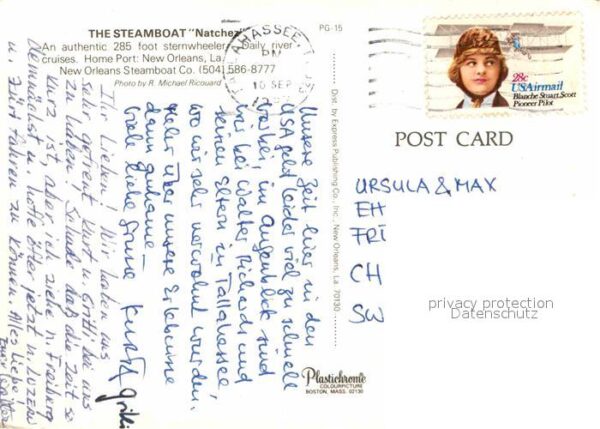 THE STEAMBOAT "Natchez"
An authentic 285 foot sternwheeler. Daily river
cruises. Home Port: New Orleans, La.
New Orleans Steamboat Co. (504) 586-8777
Photo by R. Michael Ricouard
PG-15
PM
10 SEP
28c
USAirmail
Blanche Stuart Scott
Pioneer Pilot
POST CARD
URSULA & MAX
EH
FRI
CH
SW
privacy protection
Datenschutz
Dist. by Express Publishing Co., Inc., New Orleans, La. 70130
Plastichrome
COLOURPICTURE
BOSTON, MASS. 02130
Unsere Zeit hier in den
USA geht leider viel zu schnell
vorbei, im Augenblick sind
wir bei Walter Richards und
seinen Eltern in Tallahassee
wo wir sehr verwöhnt wurden.
Mehr über unsere Erlebnisse
dann zuhause
Viele liebe Grüsse Kurt &
Ihr Lieben! Wir haben uns
sehr gefreut Kurt u. bei uns
zu haben! Schade daß die Zeit so
kurz ist, aber ich ziehe n. Freiburg
Demnächst u. hoffe öfter jetzt n. Luzern
u. fahren zu können. Alles Liebe!